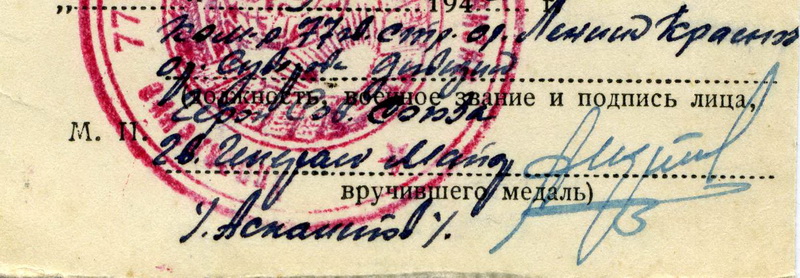 „ 194 г.
Ком-р 77 гв. стр. ор. Ленина Красноз
ор. Суворова Дивизии
(должность, военное звание и подпись лица,
Герой Сов. Союза
М. П.
Гв. Генерал Майор
вручившего медаль)
/. Аскалепов /.
77